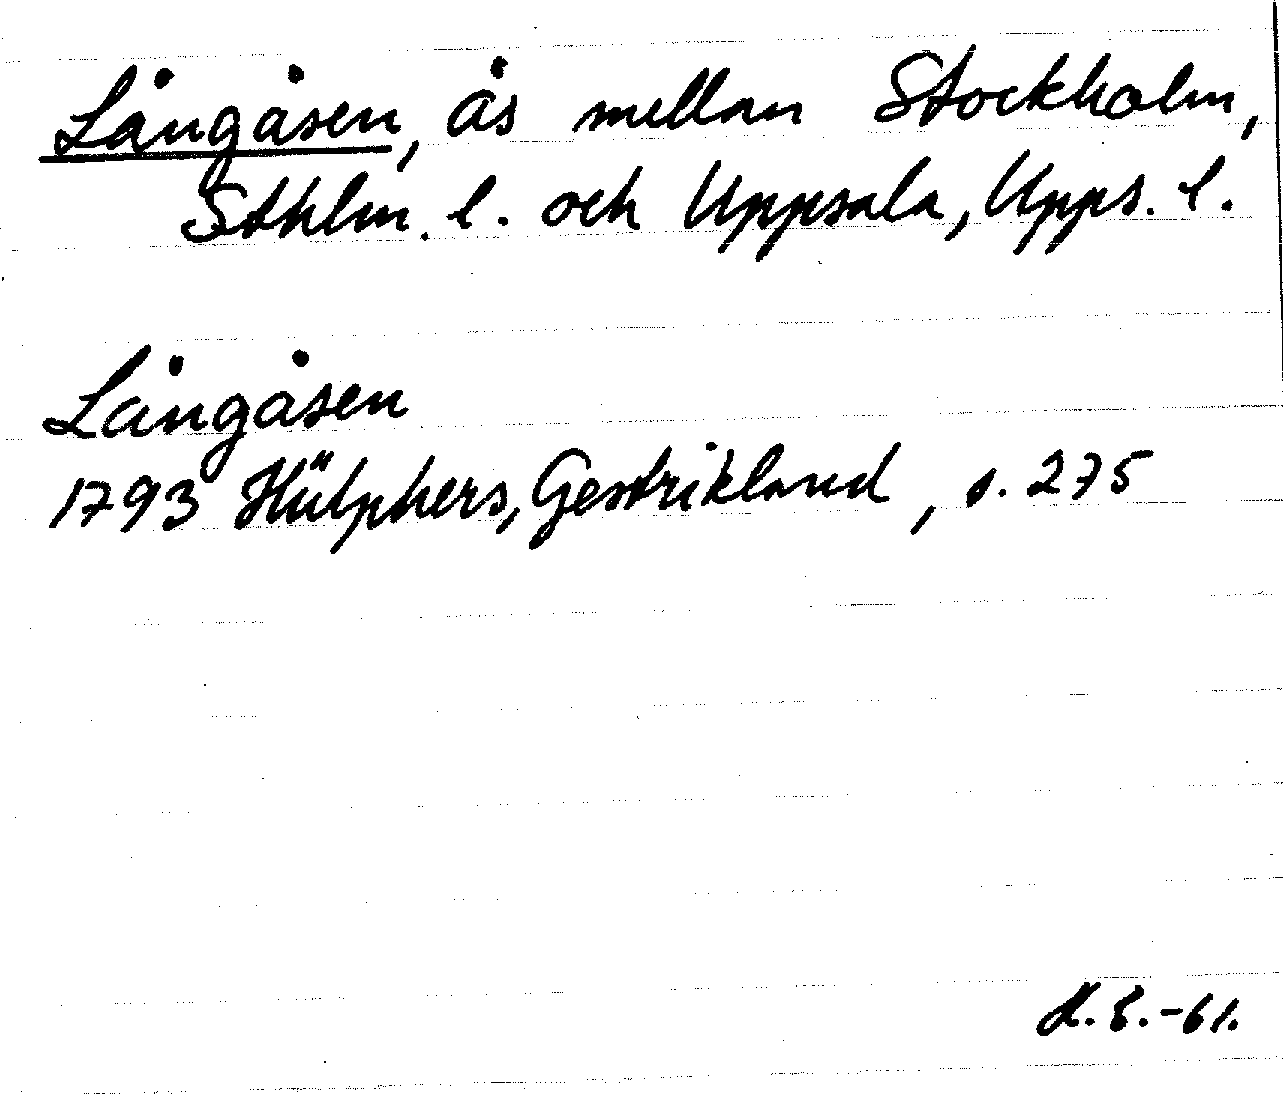 Långåsen, ås mellan Stockholm,
Sthlm. l. och Uppsala, Upps. l.
Långåsen
1793 Hülphers, Gestrikland, s. 275
-61.